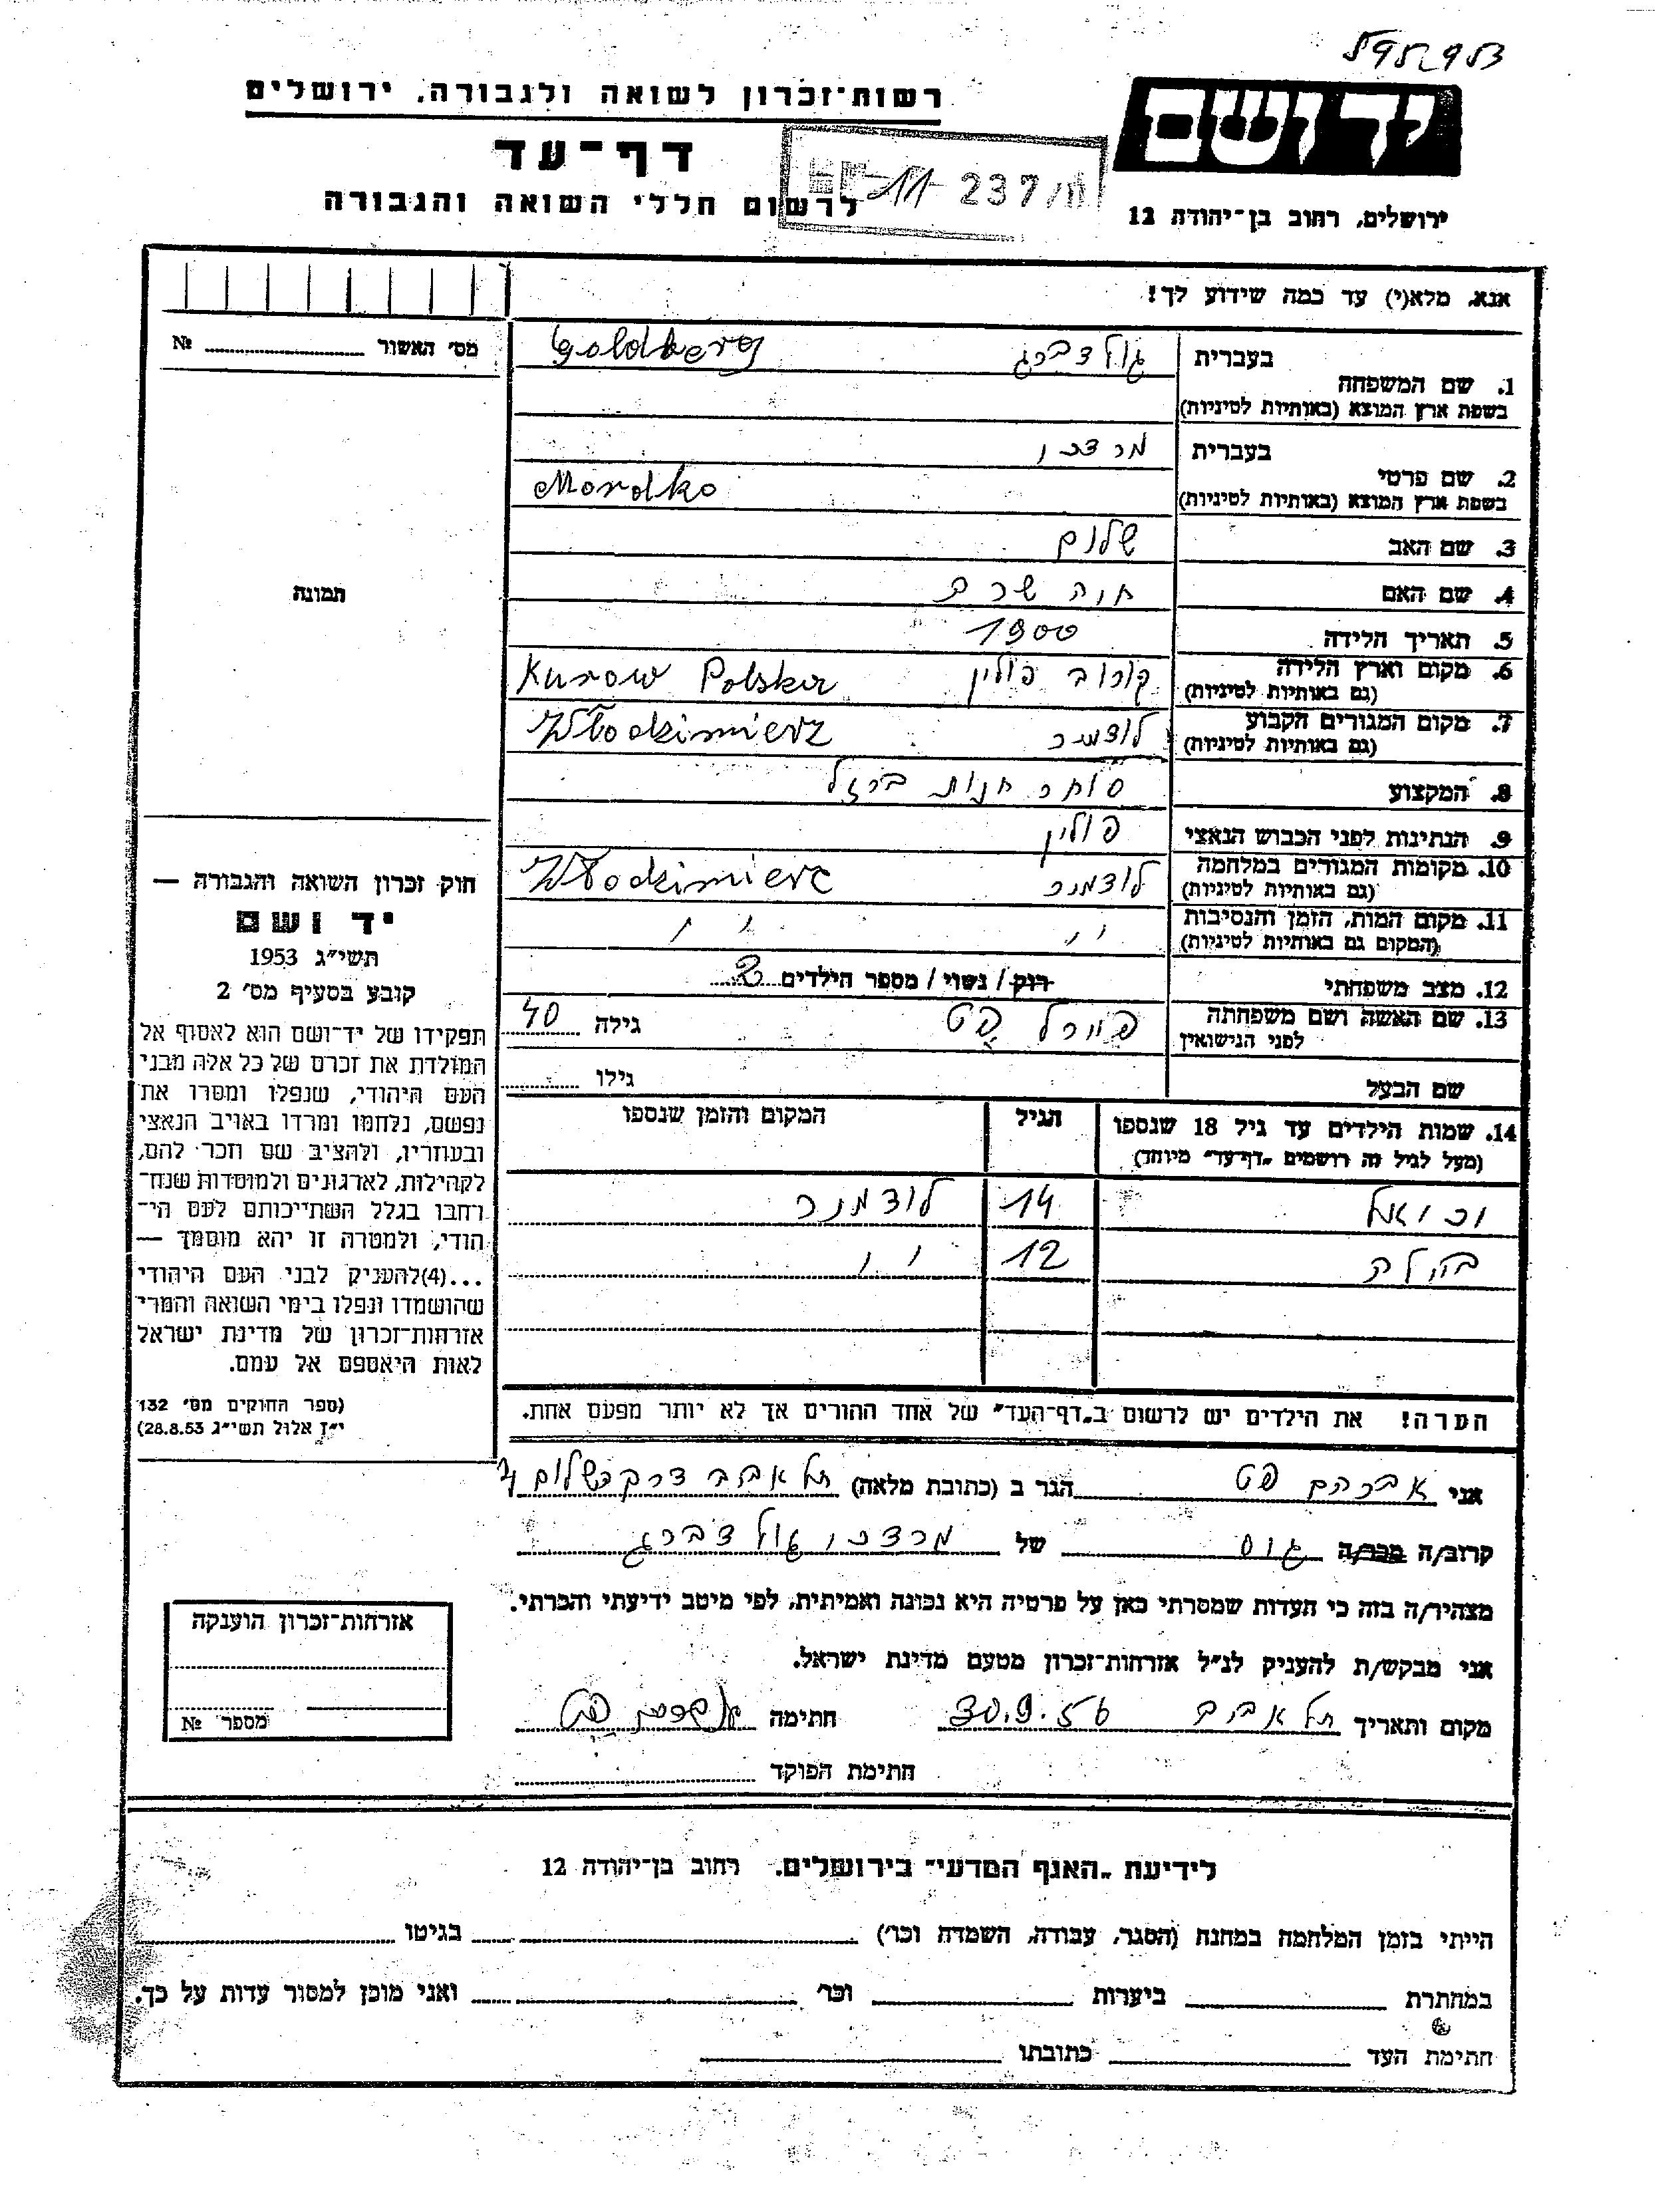 רשות־זכרון לשואה ולגבורה, ירושלים
יד ושם
דף־עד
לרשום חללי השואה והגבורה
11 237/III
ירושלים, רחוב בן־יהודה 12
אנא, מלא(י) עד כמה שידוע לך!
מס׳ האשור №
1. שם המשפחה
בעברית גולדברג Goldberg
בשפת ארץ המוצא (באותיות לטיניות)
2. שם פרטי
בעברית מרדכי
בשפת ארץ המוצא (באותיות לטיניות) Mordko
3. שם האב שלום
4. שם האם חוה שרה
5. תאריך הלידה 1900
6. מקום וארץ הלידה קורוב פולין Kurow Polska
(גם באותיות לטיניות)
7. מקום המגורים הקבוע לודמיר Włodzimierz
(גם באותיות לטיניות)
8. המקצוע סוחר חנות ברזל
9. הנתינות לפני הכבוש הנאצי פולין
10. מקומות המגורים במלחמה לודמיר Włodzimierz
(גם באותיות לטיניות)
11. מקום המות, הזמן והנסיבות ״ ״
(המקום גם באותיות לטיניות)
12. מצב משפחתי רוק/ נשוי/ מספר הילדים 2
13. שם האשה ושם משפחתה גילה 40
לפני הנישואין
שם הבעל גילו
14. שמות הילדים עד גיל 18 שנספו הגיל המקום והזמן שנספו
(מעל לגיל זה רושמים „דף־עד״ מיוחד)
14 לודמיר
12 ״
הערה! את הילדים יש לרשום ב„דף־העד״ של אחד ההורים אך לא יותר מפעם אחת.
תמונה
חוק זכרון השואה והגבורה —
יד ושם
תשי״ג 1953
קובע בסעיף מס׳ 2
תפקידו של יד־ושם הוא לאסוף אל
המולדת את זכרם של כל אלה מבני
העם היהודי, שנפלו ומסרו את
נפשם, נלחמו ומרדו באויב הנאצי
ובעוזריו, ולהציב שם וזכר להם,
לקהילות, לארגונים ולמוסדות שנח־
רחבו בגלל השתייכותם לעם הי־
הודי, ולמטרה זו יהא מוסמך —
...(4)להעניק לבני העם היהודי
שהושמדו ונפלו בימי השואה והמרי
אזרחות־זכרון של מדינת ישראל
לאות היאספם אל עמם.
(ספר החוקים מס׳ 132
י״ז אלול תשי״ג 28.8.53)
אני אברהם פט הגר ב (כתובת מלאה) תל אביב דרך השלום
קרוב/ה מכר/ה גיס של מרדכי גולדברג
מצהיר/ה בזה כי העדות שמסרתי כאן על פרטיה היא נכונה ואמיתית, לפי מיטב ידיעתי והכרתי.
אני מבקש/ת להעניק לנ״ל אזרחות־זכרון מטעם מדינת ישראל.
מקום ותאריך תל אביב 30.9.56 חתימה אברהם פט
חתימת הפוקד
אזרחות־זכרון הוענקה
מספר №
לידיעת „האגף המדעי״ בירושלים, רחוב בן־יהודה 12
הייתי בזמן המלחמה במחנה (הסגר, עבודה, השמדה וכו׳) בגיטו
במחתרת ביערות וכו׳ ואני מוכן למסור עדות על כך.
חתימת העד כתובתו